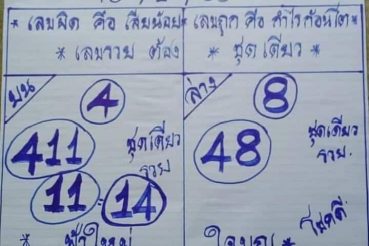 * เลขผิด คือ เสียน้อย เลขถูก คือ กำไรก้อนโต *
* เลขรวย ต้อง ชุดเดียว *
บน 4 ล่าง 8
411 ชุดเดียว รวย 48 ชุดเดียว รวย.
11 - 14 โชคดี